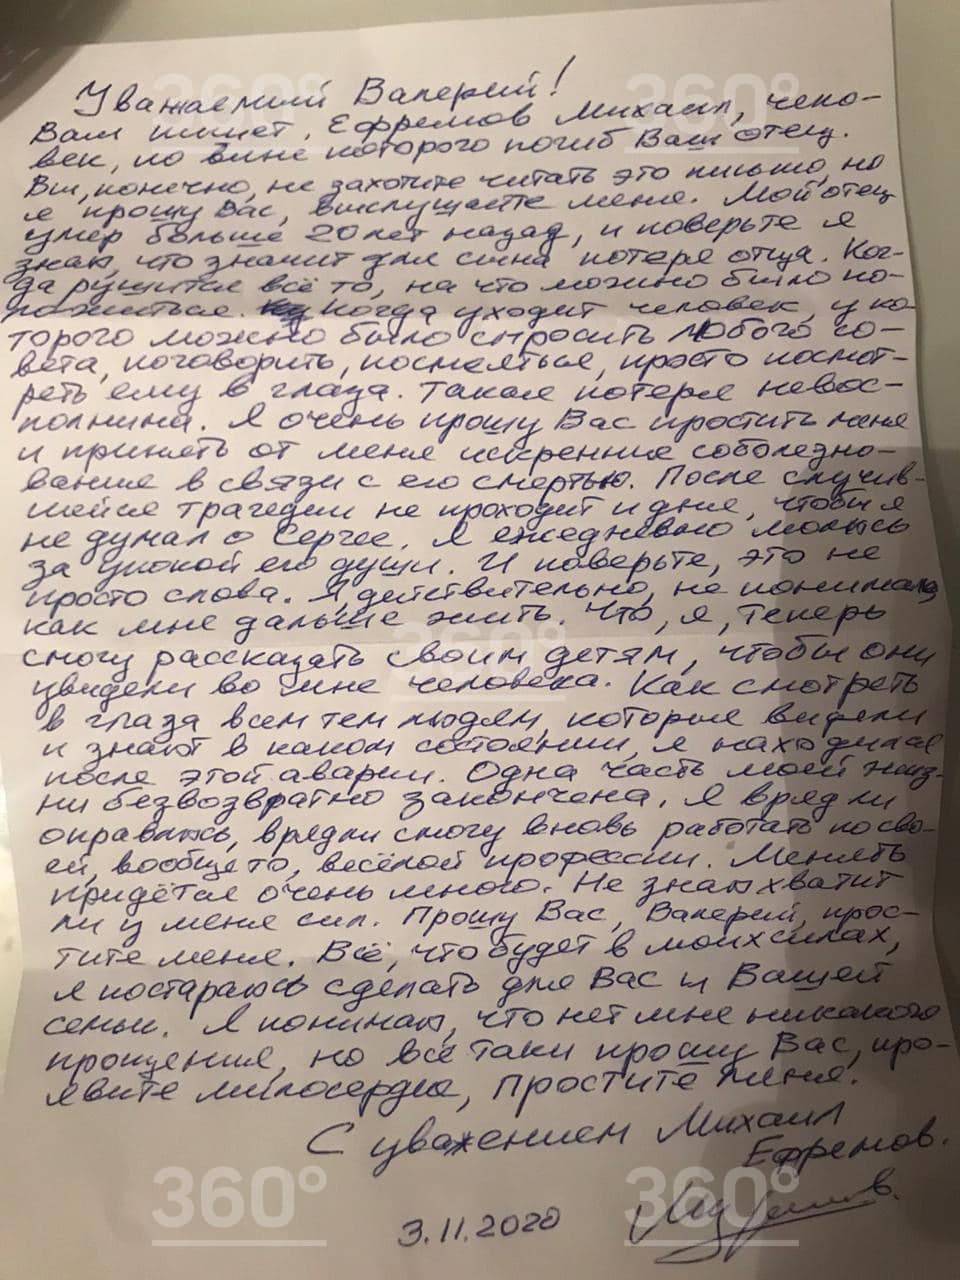 360° 360°
Уважаемый Валерий!
Вам пишет, Ефремов Михаил, чело-
век, по вине которого погиб Ваш отец.
Вы, конечно, не захотите читать это письмо, но
я прошу Вас, выслушайте меня. Мой отец
умер больше 20 лет назад, и поверьте я
знаю, что значит для сына потеря отца. Ког-
да рушится всё то, на что можно было по-
ложиться. Когда уходит человек, у ко
торого можно было спросить любого со-
вета, поговорить, посмеяться, просто посмот-
реть ему в глаза. Такая потеря невос-
полнима. Я очень прошу Вас простить меня
и принять от меня искренние соболезно-
вание в связи с его смертью. После случив-
шейся трагедии не проходит и дня, чтобы я
не думал о Сергее. Я ежедневно молюсь
за упокой его души. И поверьте, это не
просто слова. Я, действительно, не понимаю,
как мне дальше жить. Что, я, теперь
360°
смогу рассказать своим детям, чтобы они
увидели во мне человека. Как смотреть
в глаза всем тем людям, которые видели
и знают в каком состоянии, я находился
после этой аварии. Одна часть моей жиз-
ни безвозвратно закончена. Я вряд ли
оправлюсь, вряд ли смогу вновь работать по сво-
ей, вообще то, весёлой профессии. Менять
придётся очень много. Не знаю хватит
ли у меня сил. Прошу Вас, Валерий, прос-
тите меня. Всё, что будет в моих силах,
я постараюсь сделать для Вас и Вашей
семьи. Я понимаю, что нет мне никакого
прощения, но всё таки прошу Вас, про-
явите милосердие, простите меня.
С уважением Михаил
Ефремов.
360° 360°
3.11.2020